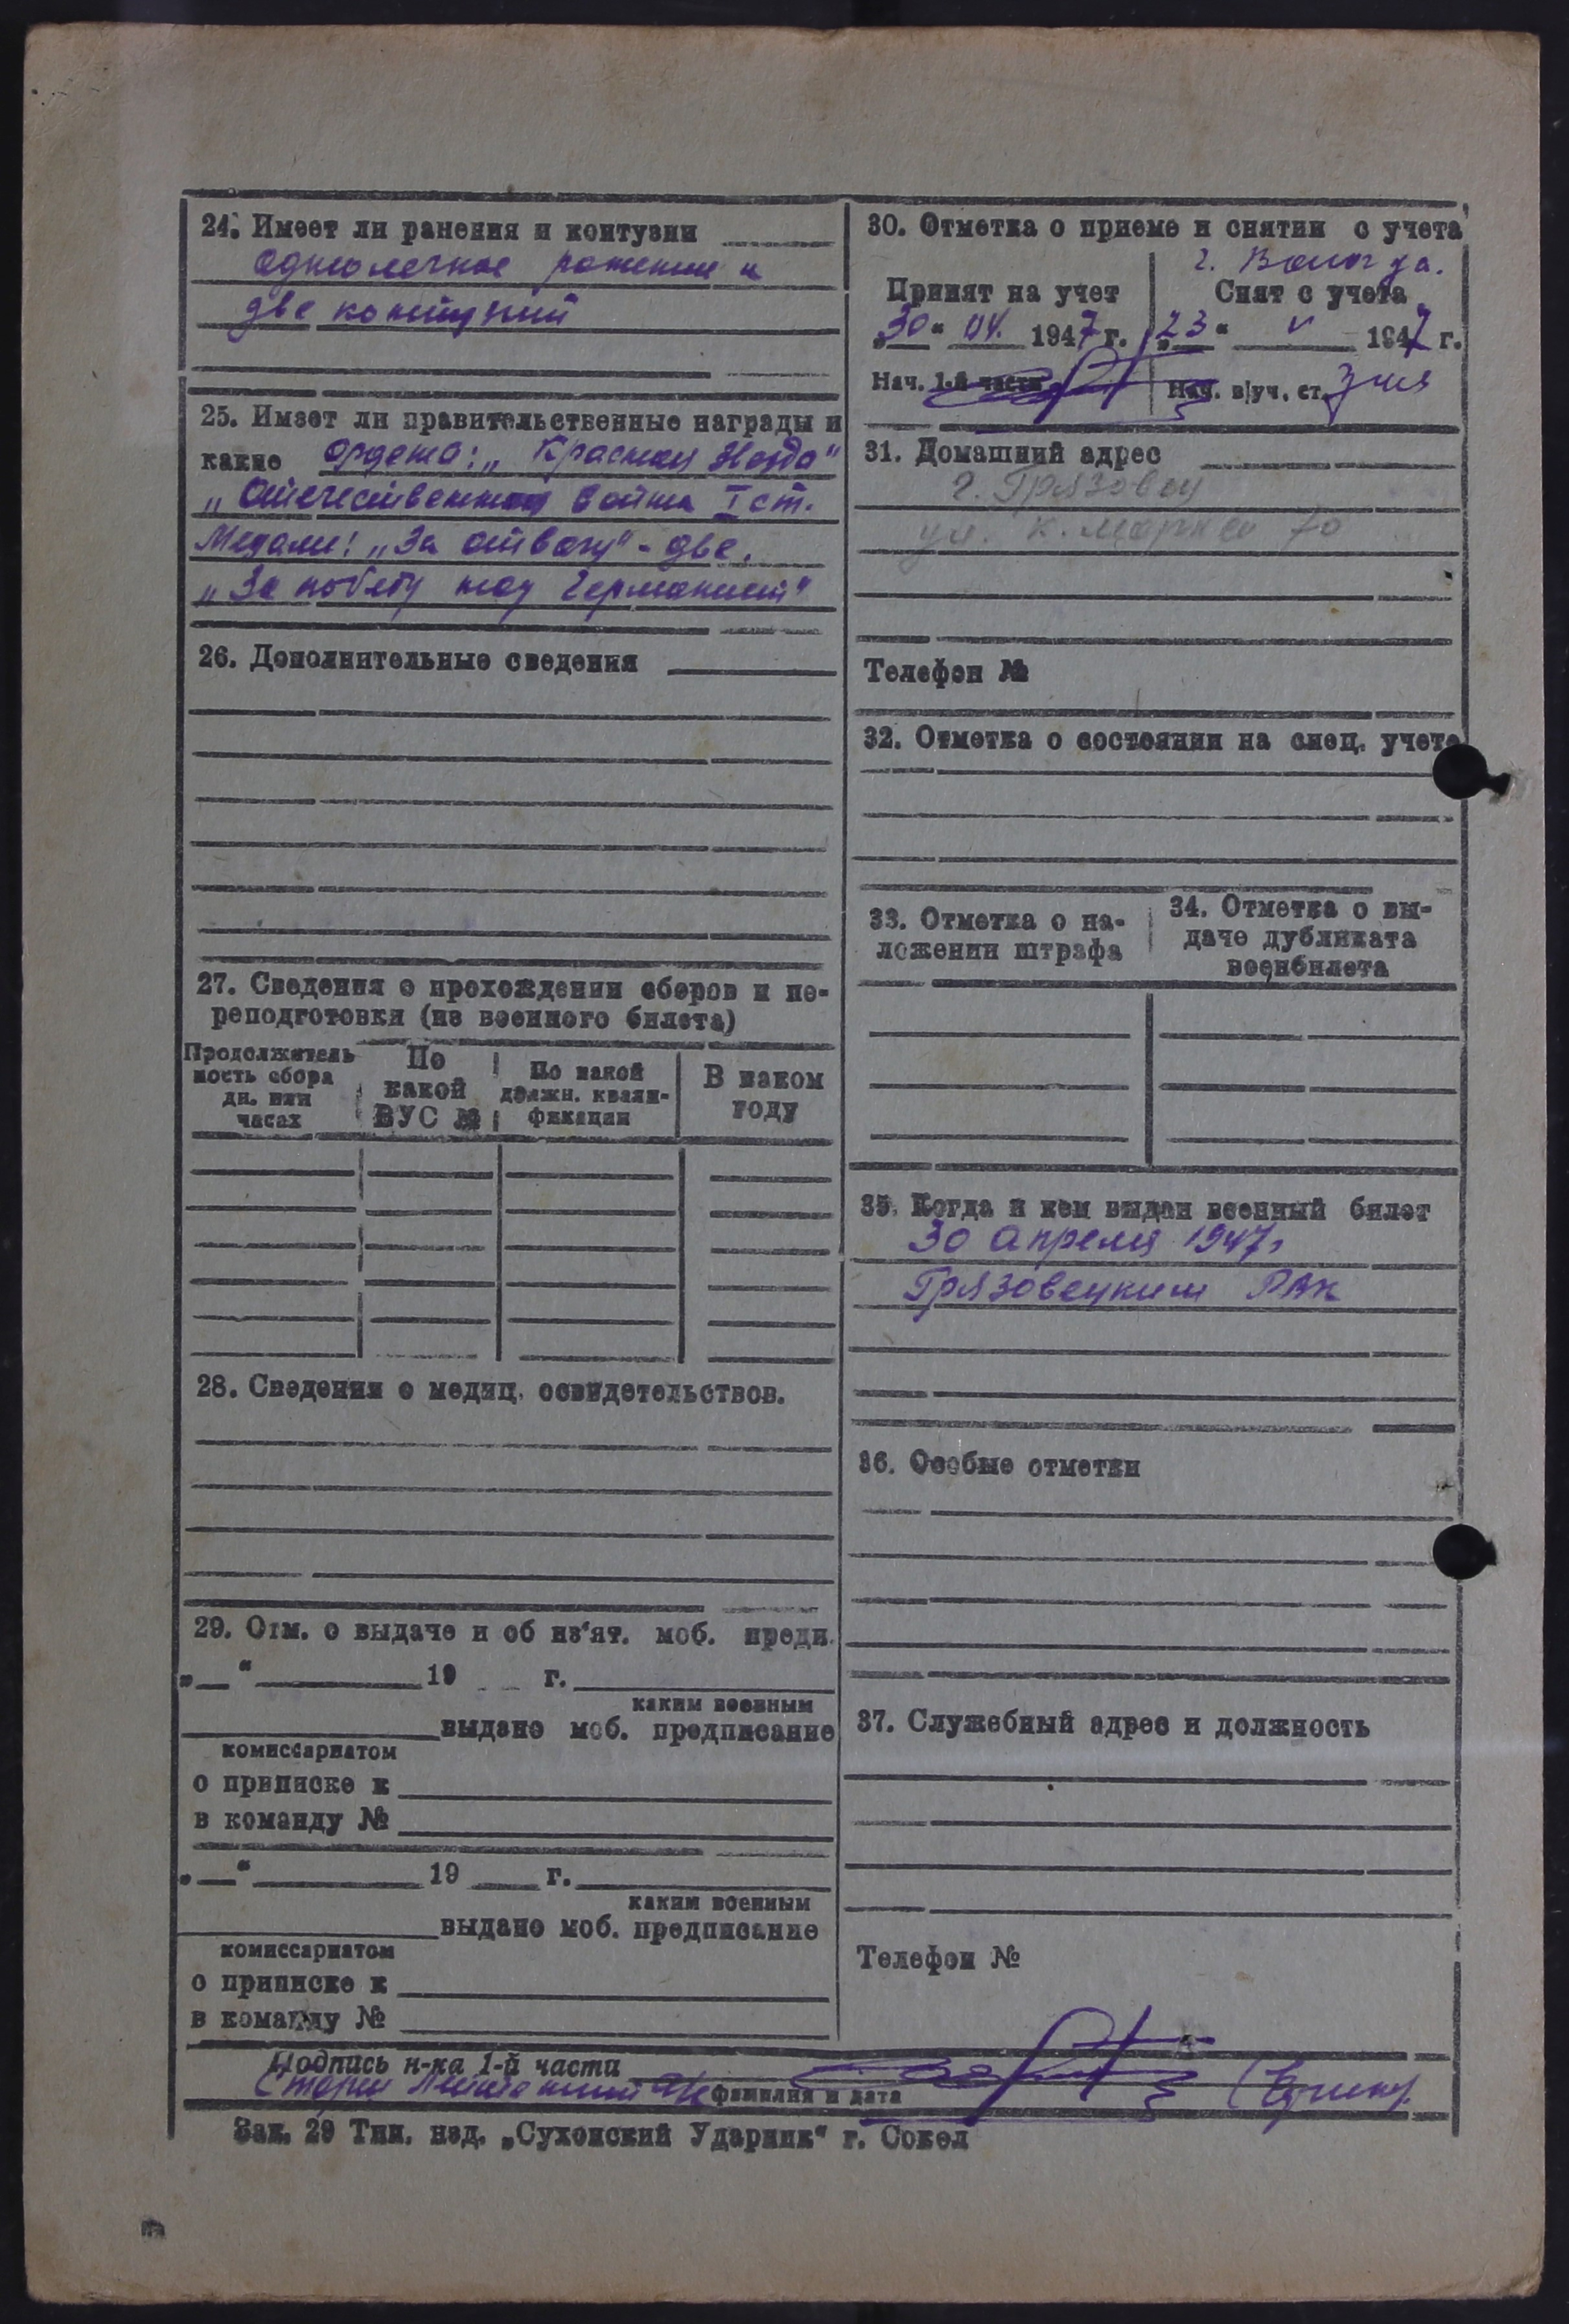 24. Имеет ли ранения и контузии
одно легкое ранение и
две контузий
25. Имеет ли правительственные награды и
какие ордена: „Красная Звезда“
„Отечественная война I ст.
Медали: „За отвагу“ - две.
„За победу над Германией“
26. Дополнительные сведения
27. Сведения о прохождении сборов и пе-
реподготовки (из военного билета)
Продолжитель
ность сбора
дн. или
часах
По
какой
ВУС №
По какой
должн. квали-
фикации
В каком
году
28. Сведения о медиц. освидетельствов.
29. Отм. о выдаче и об из‘ят. моб. предп.
„ “ 19 г.
каким военным
выдано моб. предписание
комиссариатом
о приписке к
в команду №
„ “ 19 г.
каким военным
выдано моб. предписание
комиссариатом
о приписке к
в команду №
30. Отметка о приеме и снятии с учета
г. Вологда.
Принят на учет
„30“ 04. 1947 г.
Нач. 1-й части
Снят с учета
„23“ V 1947 г.
Нач. в/уч. ст.
31. Домашний адрес
г. Грязовец
ул. К. Маркса 70
Телефон №
32. Отметка о состоянии на спец. учете
33. Отметка о на-
ложении штрафа
34. Отметка о вы-
даче дубликата
военбилета
35. Когда и кем выдан военный билет
30 апреля 1947г
Грязовецким РВК
36. Особые отметки
37. Служебный адрес и должность
Телефон №
Подпись н-ка 1-й части
Старш Лейтенант
фамилия и дата
Зак. 29 Тип. изд. „Сухонский Ударник“ г. Сокол